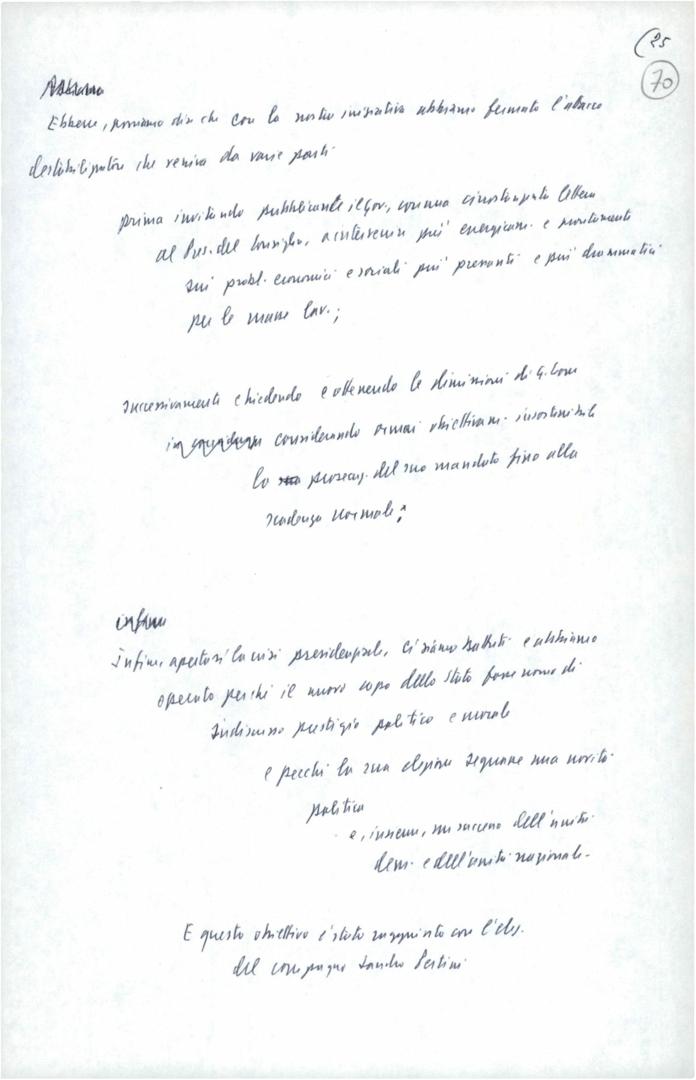 25
70
Ebbene, possiamo dire che con la nostra iniziativa abbiamo fermato l'attacco
destabilizzatore che veniva da varie parti
prima invitando pubblicamente il gov., con una circostanziata lettera
al Pres. del Consiglio, a intervenire più energicam. e prontamente
sui probl. economici e sociali più pressanti e più drammatici
per le masse lav.;
successivamente chiedendo e ottenendo le dimissioni di G. Leone
considerando ormai obiettivam. insostenibile
la prosecuz. del suo mandato fino alla
scadenza normale;
Infine, apertasi la crisi presidenziale, ci siamo battuti e abbiamo
operato perché il nuovo capo dello Stato fosse uomo di
indiscusso prestigio politico e morale
e perché la sua elezione segnasse una novità
politica
e, insieme, un successo dell'unità
dem. e dell'unità nazionale.
E questo obiettivo è stato raggiunto con l'elez.
del compagno Sandro Pertini